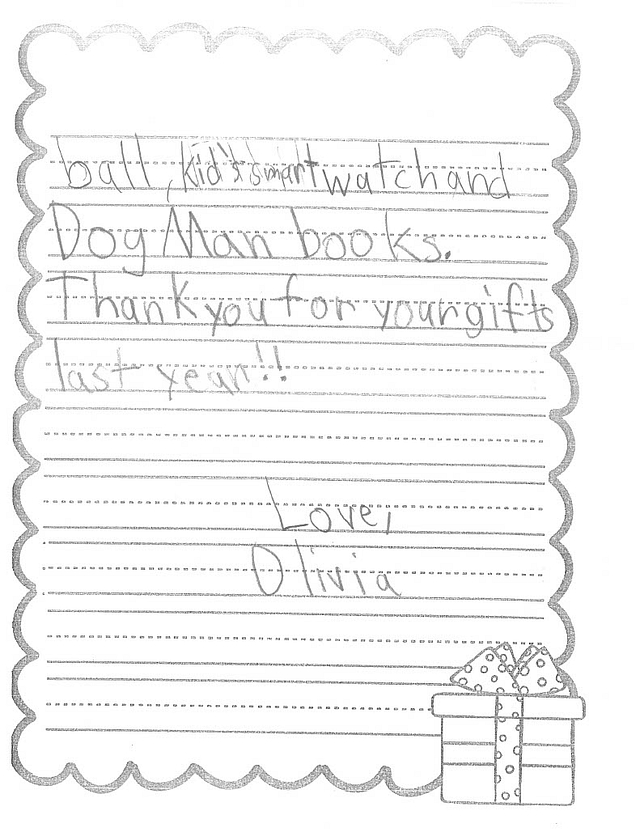 ball, kid's smart watch and
Dog Man books.
Thank you for your gifts
last year!!
Love,
Olivia